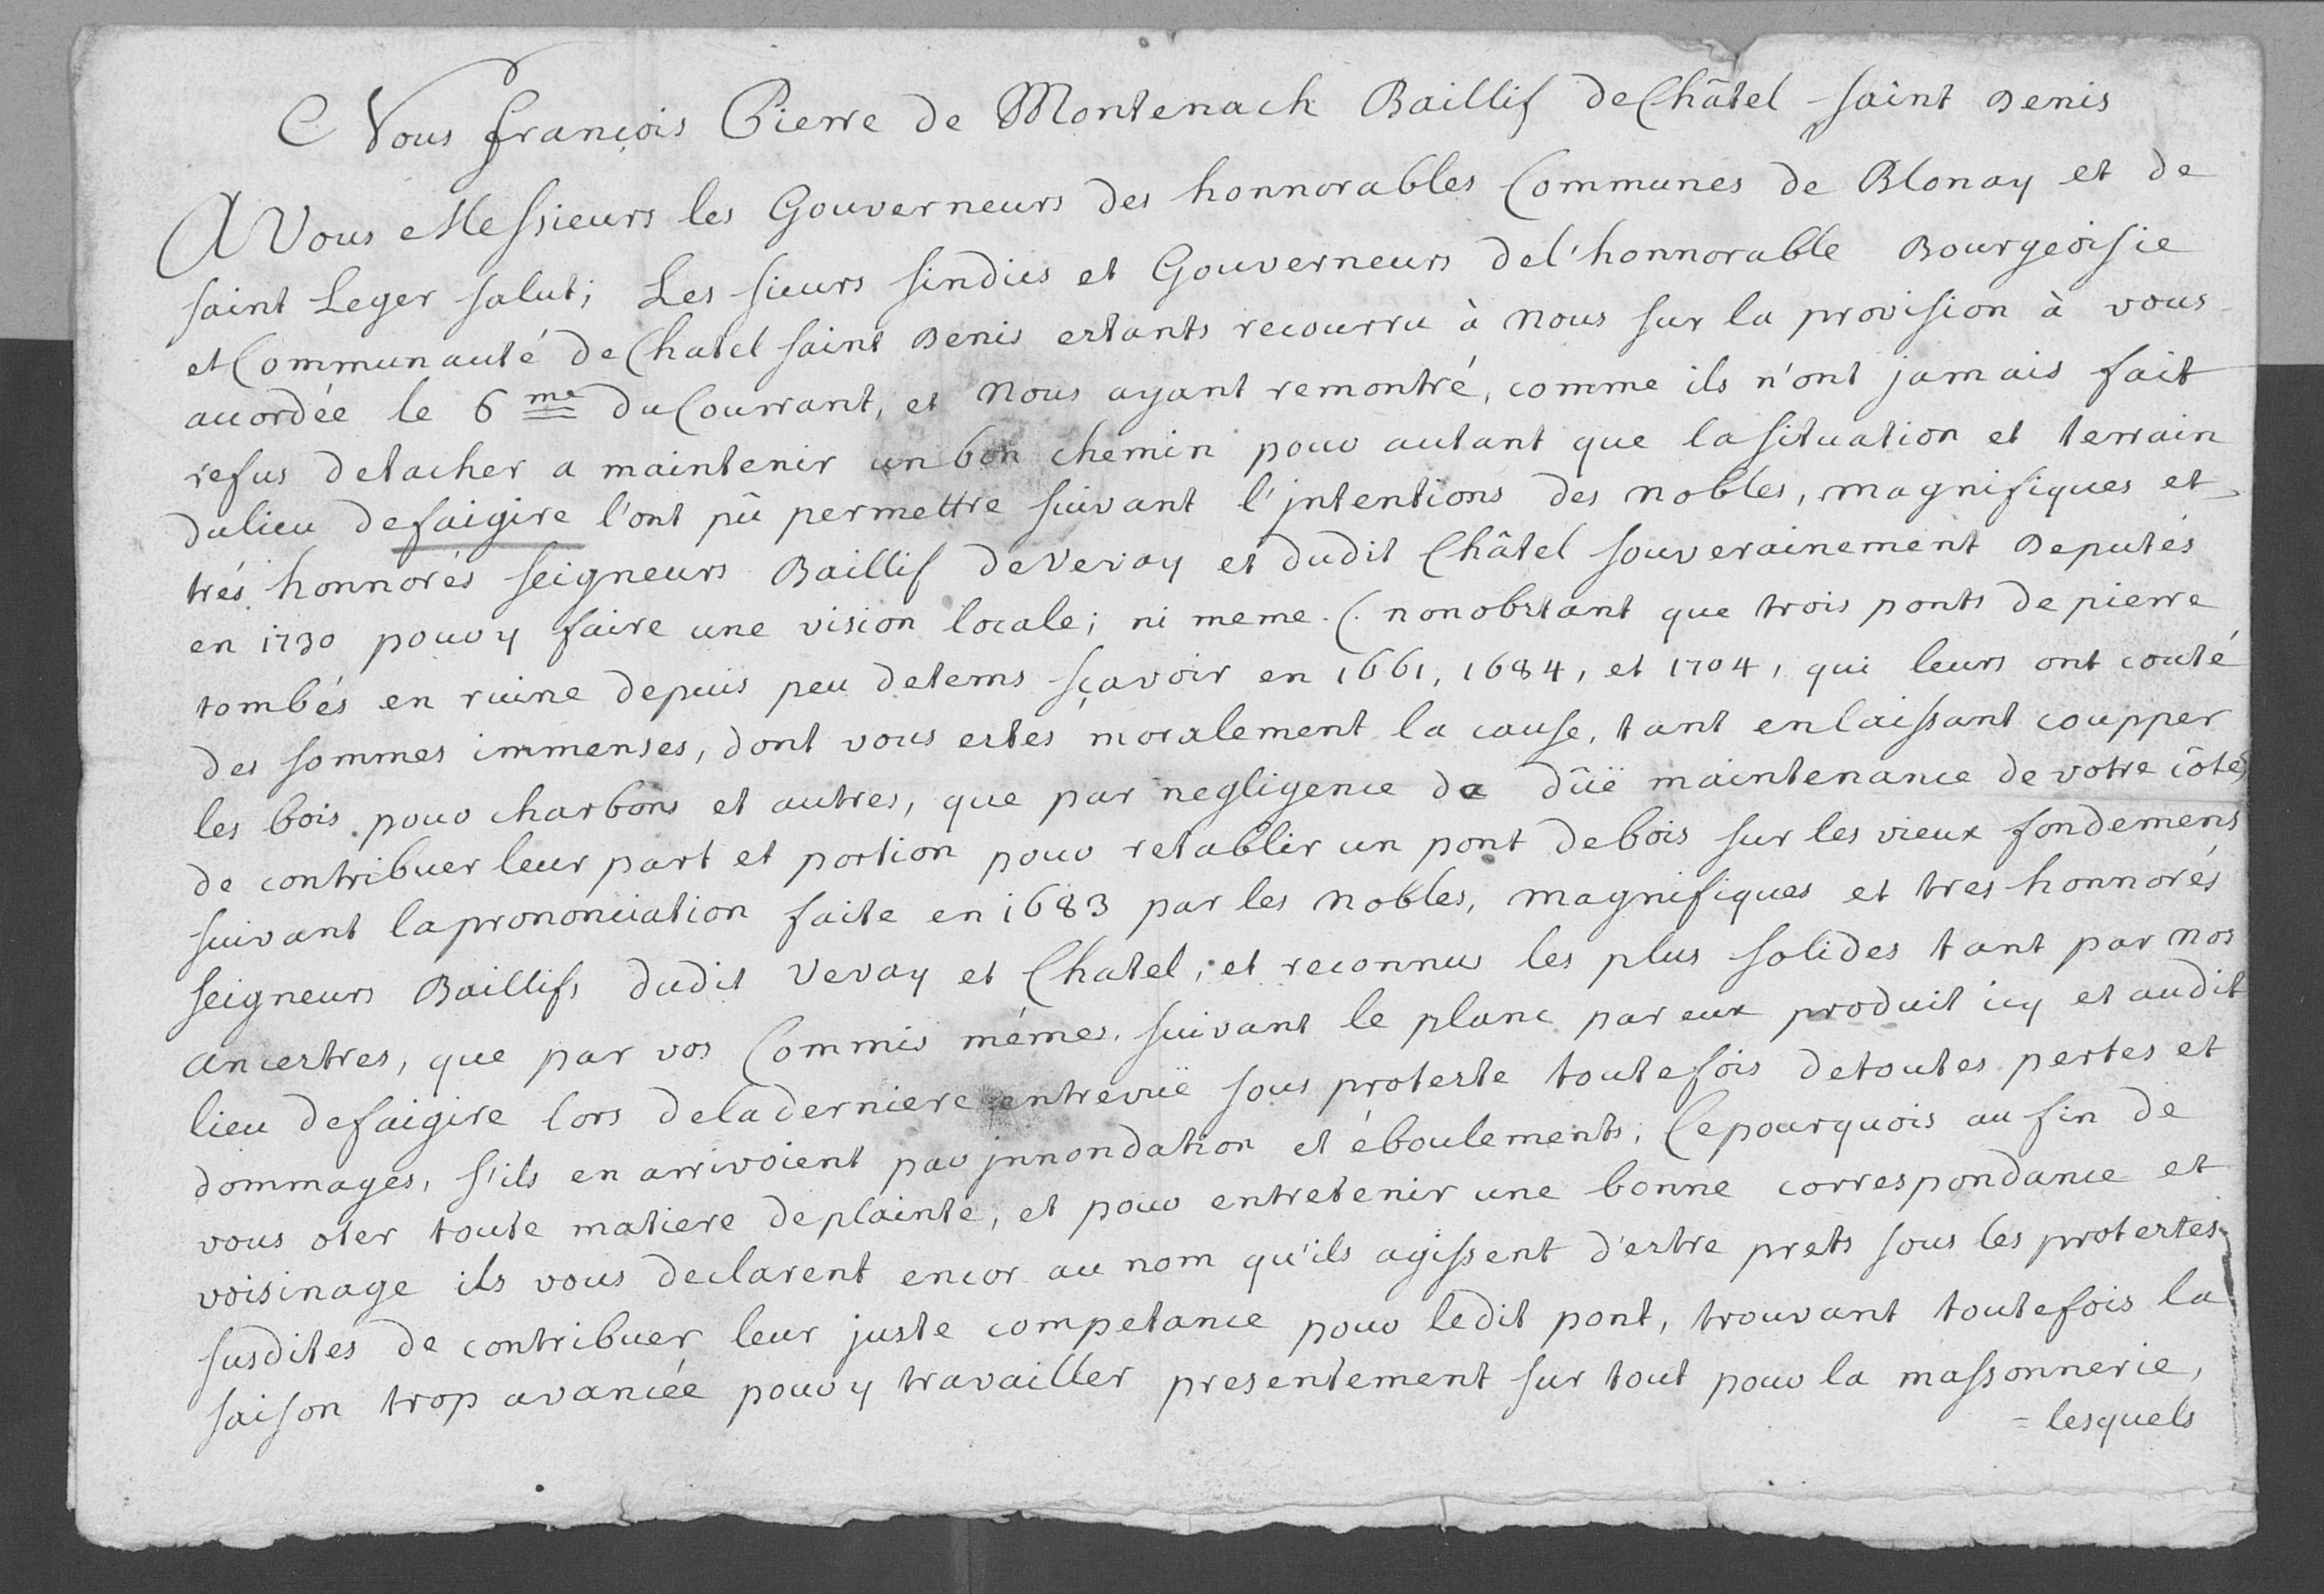 Nous François Pierre de Montenach Baillif de Châtel saint Denis
A Vous Messieurs les Gouverneurs des honnorables Communes de Blonay et de
saint Leger salut; Les sieurs sindics et Gouverneurs de l'honnorable Bourgeoisie
et Communauté de Chatel saint Denis estants recourru à Nous sur la provision à vous
accordée le 6me du Courrant, et Nous ayant remontré, comme ils n'ont jamais fait
refus de tacher a maintenir un bon chemin pour autant que la situation et terrain
du lieu de faigire l'ont pû permettre suivant l'jntentions des Nobles, magnifiques et
trés honnorés seigneurs Baillif de Vevay et dudit Châtel souverainement Deputés
en 1730 pour y faire une vision locale; ni meme (nonobstant que trois ponts de pierre
tombés en ruine depuis peu de tems sçavoir en 1661, 1684, et 1704, qui leurs ont couté
des sommes immenses, dont vous estes moralement la cause, tant en laissant coupper
les bois pour charbons et autres, que par negligence de dûë maintenance de votre côté)
de contribuer leur part et portion pour retablir un pont de bois sur les vieux fondemens
suivant la prononciation faite en 1683 par les Nobles, magnifiques et tres honnorés
seigneurs Baillifs dudit Vevay et Chatel, et reconnus les plus solides tant par nos
ancestres, que par vos Commis mémes, suivant le planc par eux produit icy et audit
lieu de faigire lors de la derniere entrevuë sous proteste toutefois de toutes pertes et
dommages, s'ils en arrivoient par jnnondation et éboulements; Ce pourquois au fin de
vous oter toute matiere de plainte, et pour entretenir une bonne correspondance et
voisinage ils vous declarent encor au nom qu'ils agissent d'estre prets sous les protestes
susdites de contribuer leur juste competance pour ledit pont, trouvant toutefois la
saison trop avancée pour y travailler presentement sur tout pour la massonnerie,
= lesquels